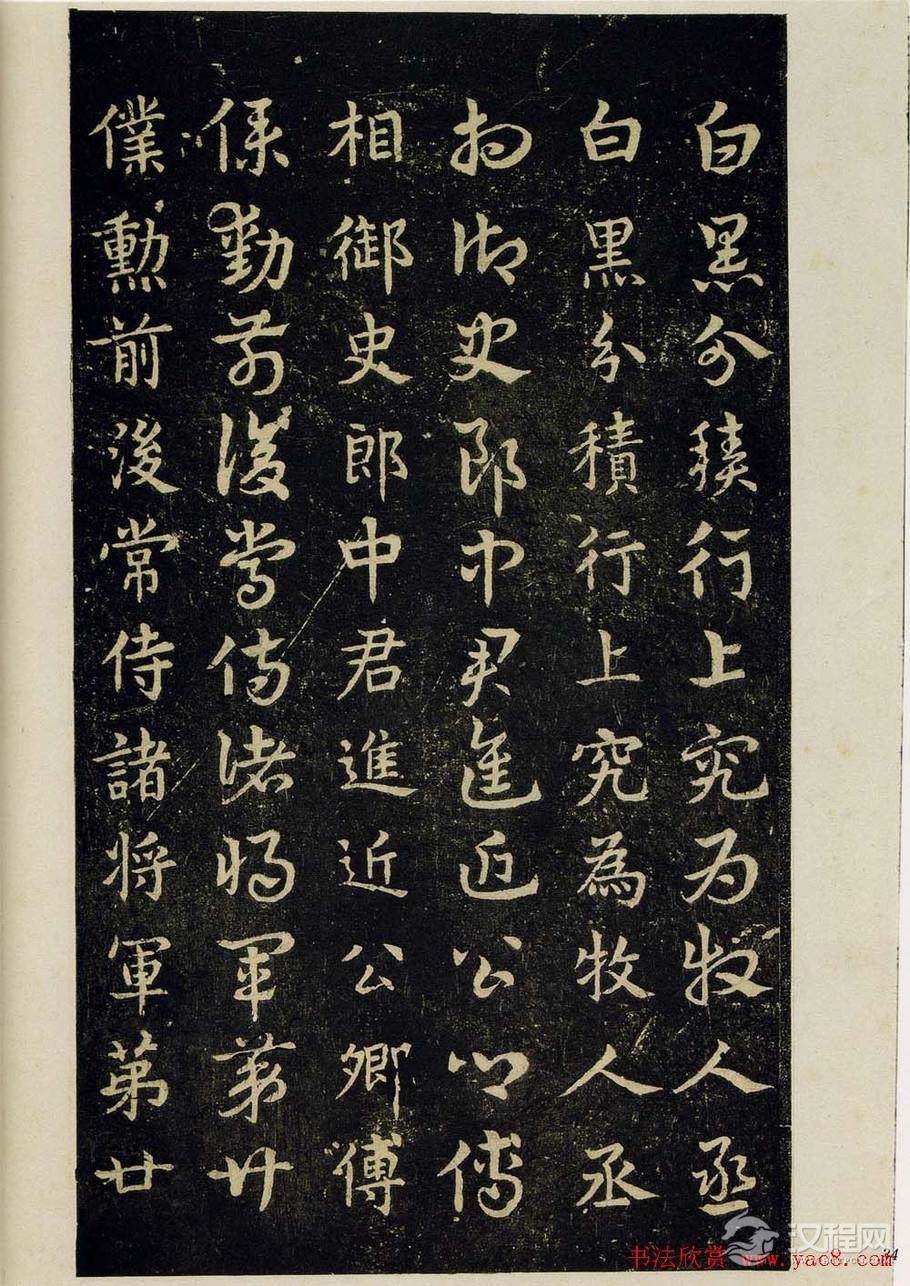 白黑分積行上究為牧人丞
白黑分積行上究為牧人丞
相御史郎中君進近公卿傅
相御史郎中君進近公卿傅
僕勳前後常侍諸將軍第廿
僕勳前後常侍諸将軍第廿
汉程网
书法欣赏 www.yac8.com
24